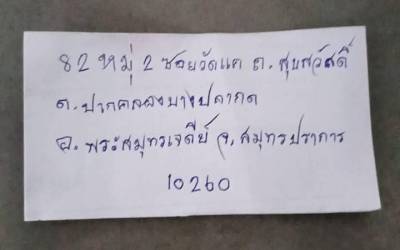 82 หมู่ 2 ซอยวัดแค ถ. สุขสวัสดิ์
ต. ปากคลองบางปลากด
อ. พระสมุทรเจดีย์ จ. สมุทรปราการ
10260